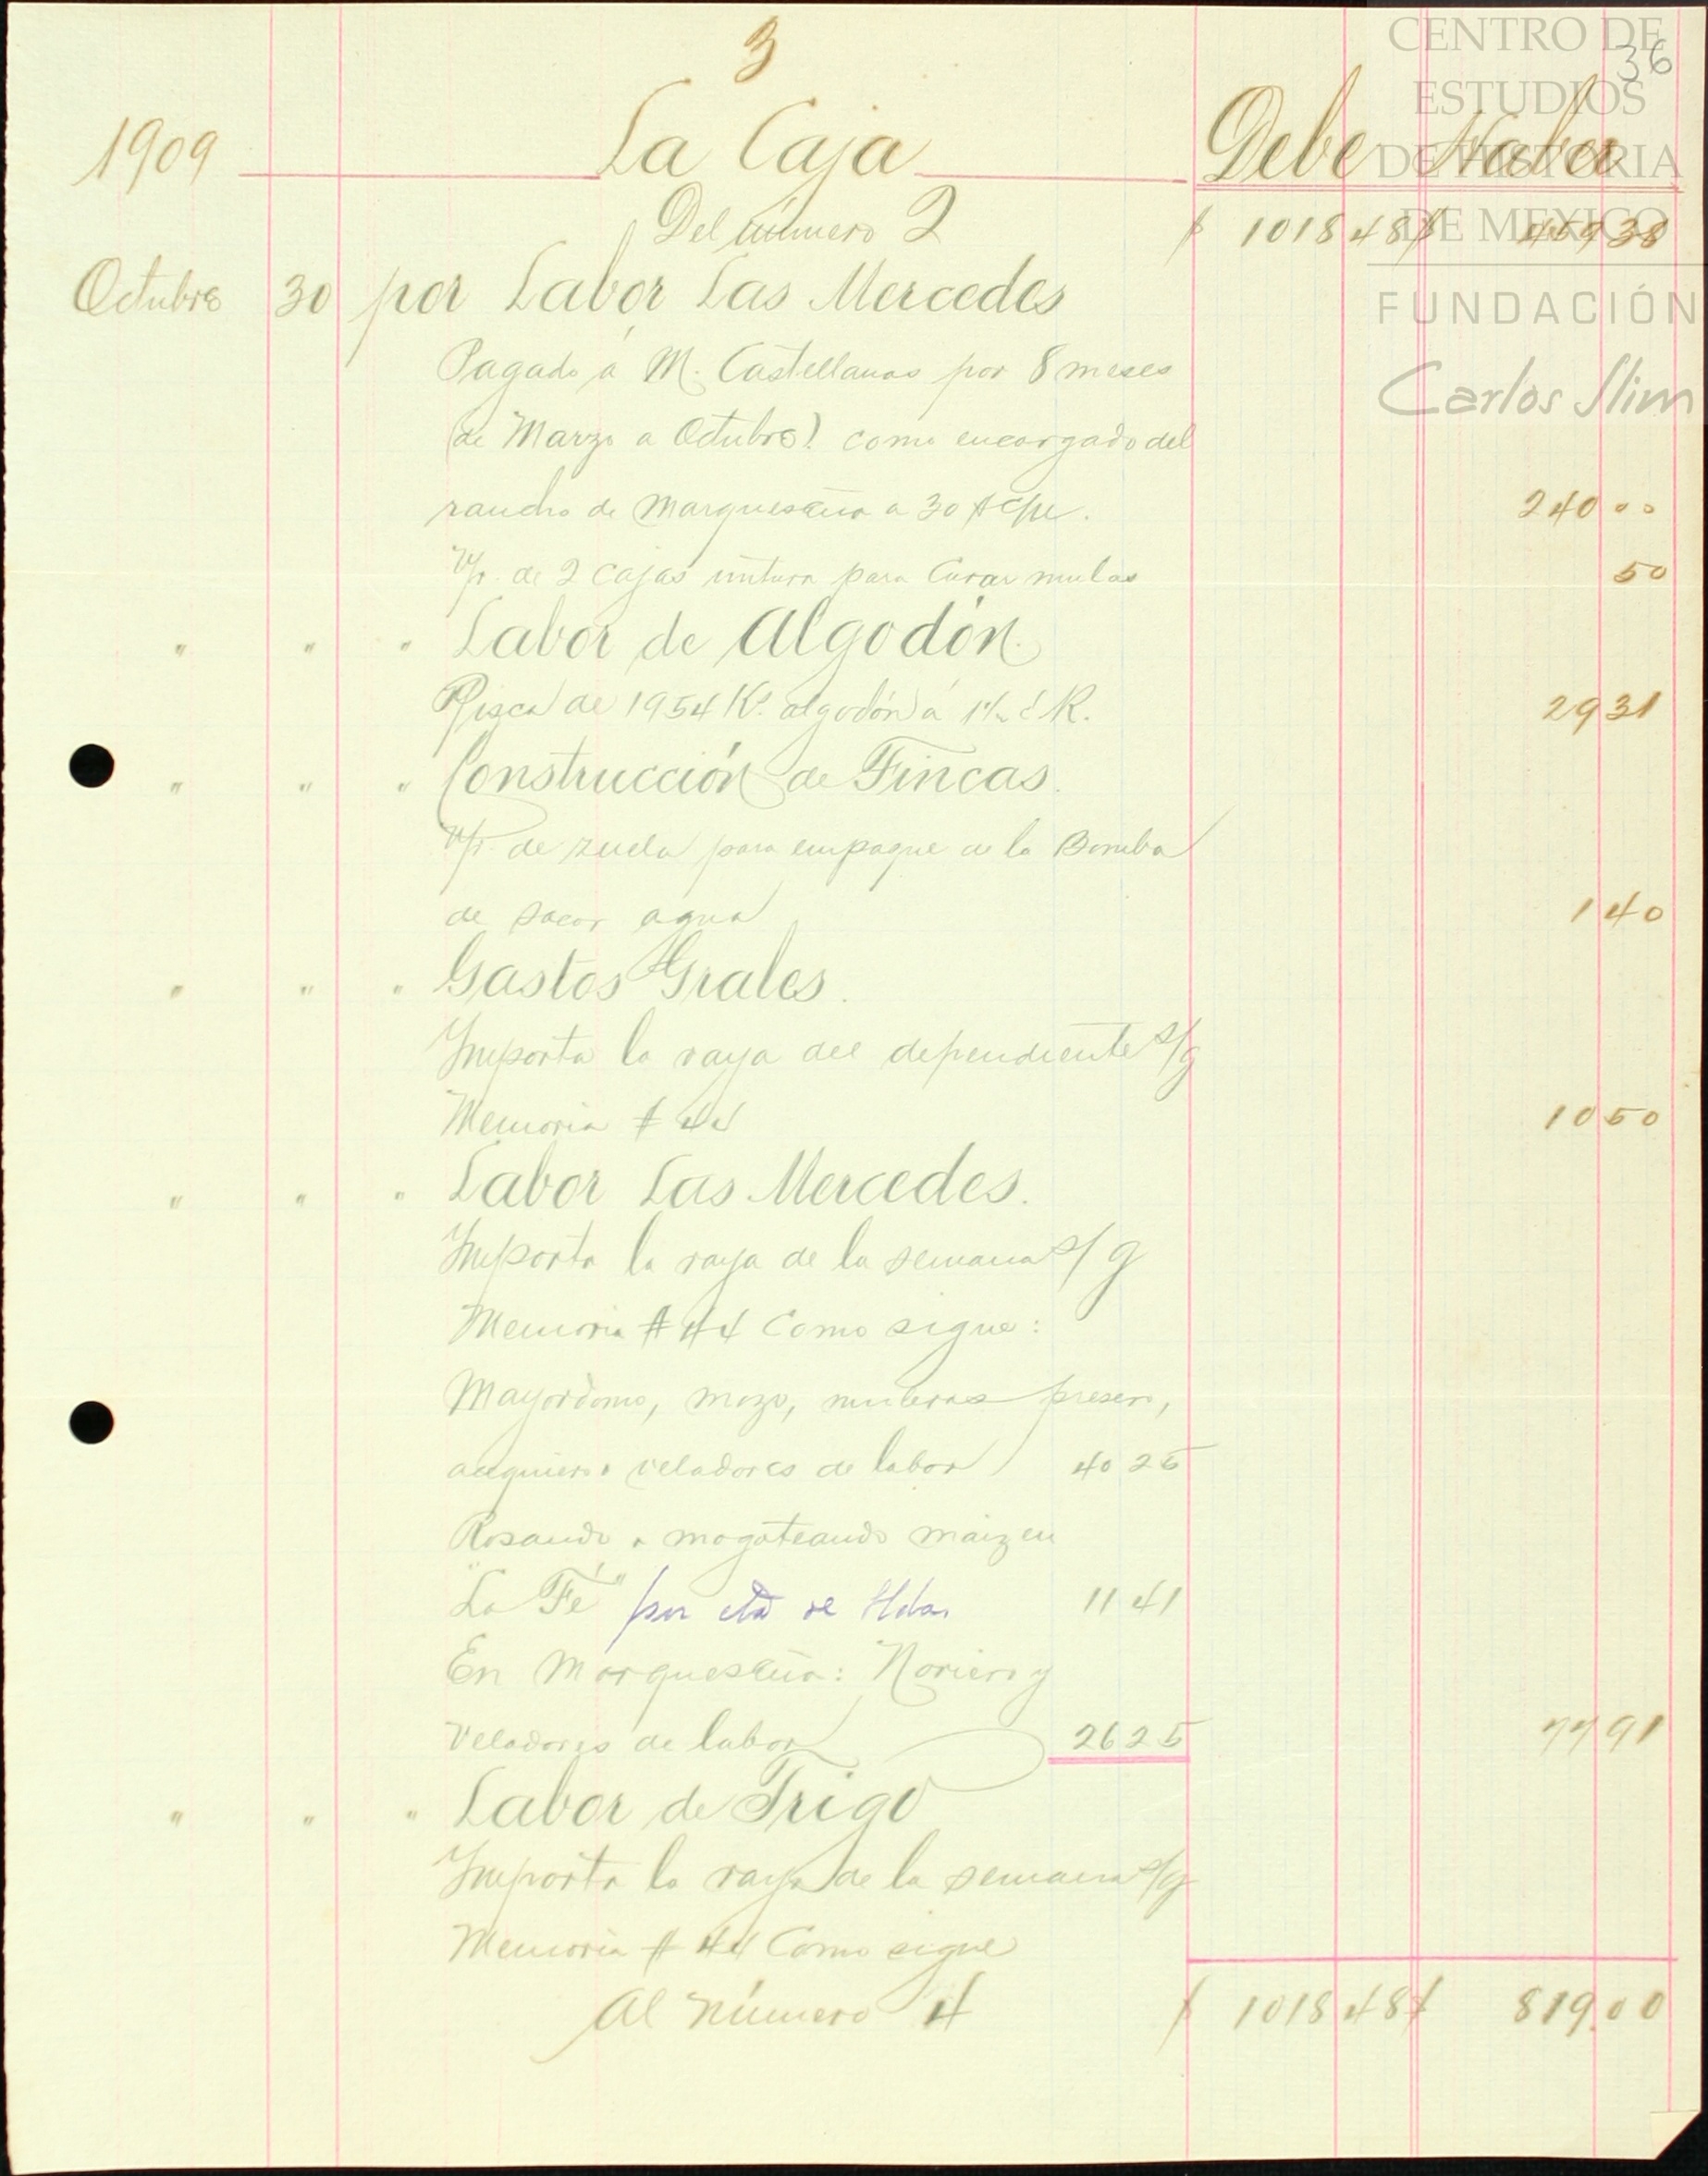 3
36
1909 La Caja Debe Haber
Del número 2 $ 1018 48 $ 459 38
Octubre 30 por Labor Las Mercedes
Pagado á M. Castellanos por 8 meses
(de Marzo a Octubre) como encargado del
rancho de Marqueseña a 30 $ 240 00
V/r. de 2 cajas untura para Curar mulas 50
" " " Labor de Algodón.
Pisca de 1954 K. algodón á 1½ ¢ K. 29 31
" " " Construcción de Fincas.
V/r. de zuela para empaque de la Bomba
de sacar agua 1 40
" " " Gastos Grales.
Importa la raya del dependiente s/g
Memoria # 44 10 50
" " " Labor Las Mercedes.
Importa la raya de la semana s/g
Memoria # 44 Como sigue:
Mayordomo, mozo, muleros presero,
veladores de labor 40 25
Rosando mogoteando maiz en
"La Fé" por cta de Hdas 11 41
En Marqueseña: Noriero y
Veladores de labor 26 25 77 91
" " " Labor de Trigo
Importa la raya de la semana s/g
Memoria # 44 Como sigue
Al número 4 $ 1018 48 $ 819.00
CENTRO DE
ESTUDIOS
DE HISTORIA
DE MEXICO
FUNDACIÓN
Carlos Slim